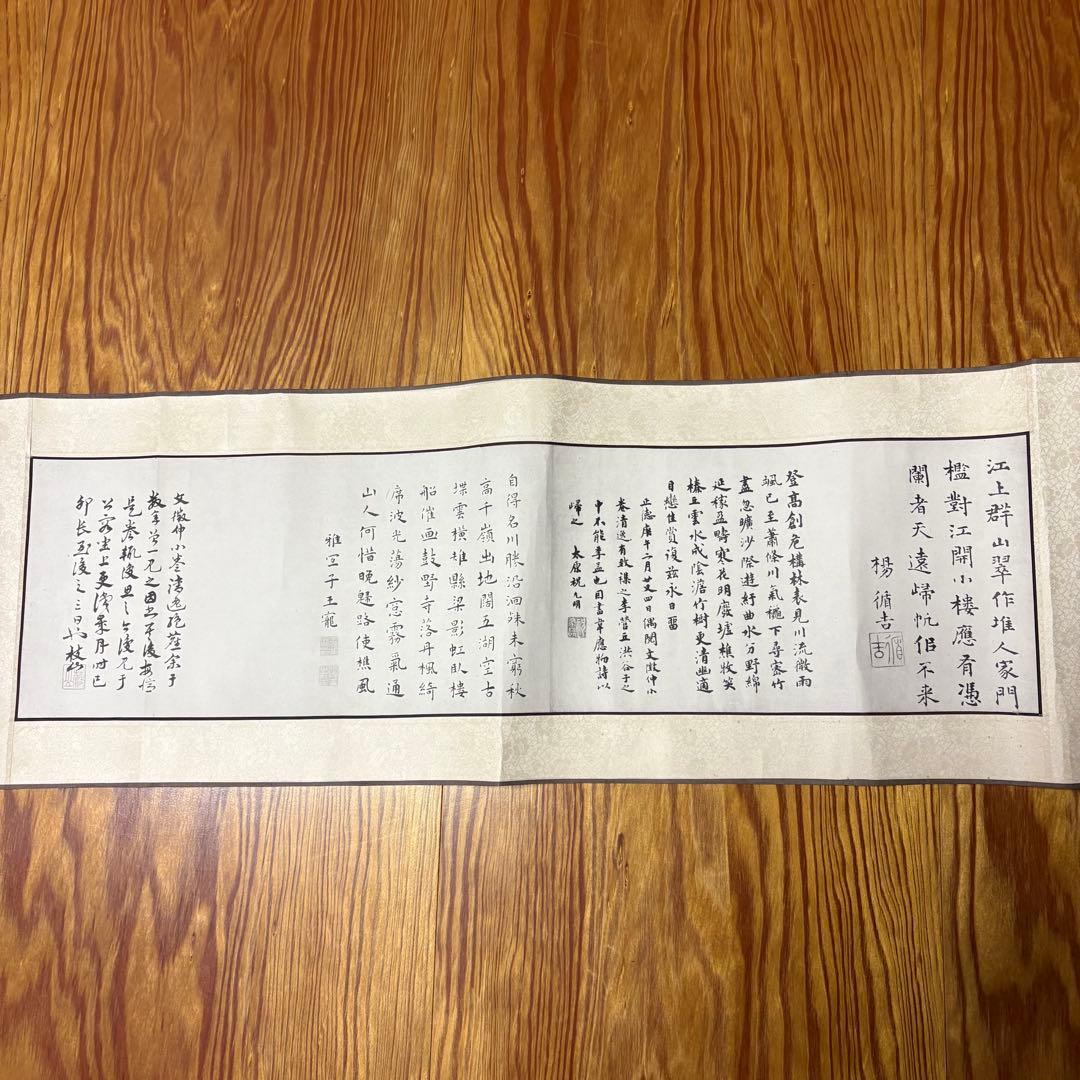 江上群山翠作堆人家門
檻對江開小樓應有憑
闌者天遠歸帆佀不来
楊循吉
循吉
登高創危構林表見川流微雨
颯已至蕭條川氣秋下尋密竹
盡忽曠沙際遊紆曲水分野綿
延稼盈疇寒花明廢墟樵牧笑
榛丘雲水成陰澹竹樹更清幽適
自戀佳賞復茲永日留
正德庚午二月廿又四日偶閱文徵仲小
卷清遠有致謀之李營丘洪谷子之
中不能李孟也因書韋應物詩以
歸之 太原祝允明
自得名川勝沿洄殊未窮秋
高千嶺出地闊五湖空古
堞雲橫雉縣梁影虹臥樓
船催画鼓野寺落丹楓綺
席波光蕩紗窓霧氣通
山人何惜晚歸路使樵風
雅宜子王寵
文徵仲小卷清逸絕塵余于
數年前一見之因
是卷執後且
坐上更
卯長至後之三日 枝山